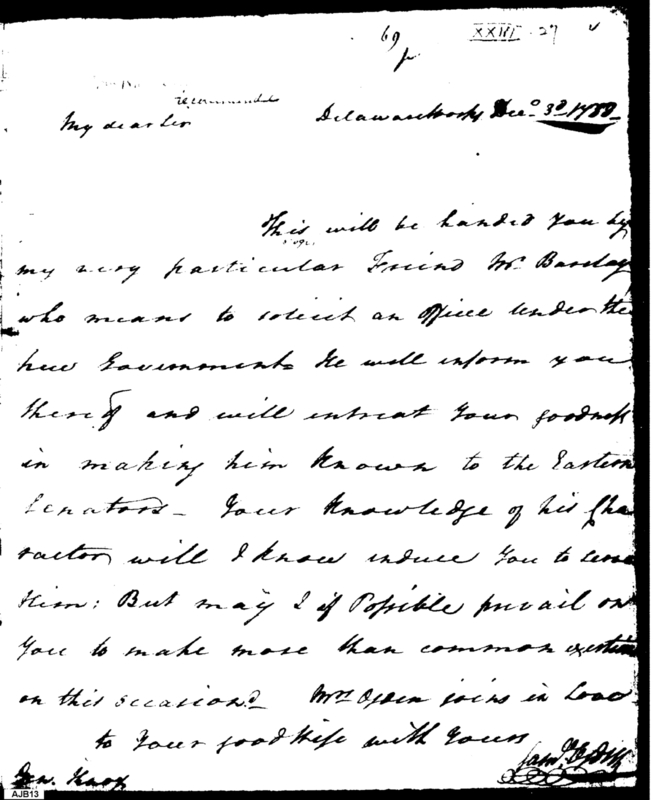 69
XXIII 27
recommended
My dear Sir Delaware Works Decr. 3d 1788
This will be handed you by
my very particular Friend Mr. Barclay
who means to solicit an office Under the
new Government He will inform you
thereof and will intreat Your goodness
in making him Known to the Eastern
Senators - Your Knowledge of his Cha
racter will I know induce You to serve
Him: But may I if Possible prevail on
You to make more than common exertion
on this occasion Mrs Ogden joins in Love
to Your good Wife with Yours
Saml. Ogden
Gen. Knox
AJB13